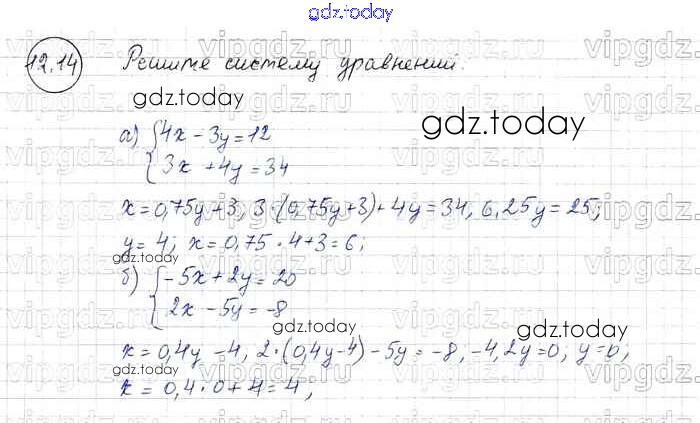 gdz.today
12.14 Решите систему уравнений:
gdz.today
gdz.today
а) { 4x - 3y = 12
3x + 4y = 34
x = 0,75y + 3, 3·(0,75y + 3) + 4y = 34, 6,25y = 25;
y = 4; x = 0,75 · 4 + 3 = 6;
gdz.today
б) { -5x + 2y = 20
2x - 5y = -8
gdz.today
gdz.today
x = 0,4y - 4, 2·(0,4y - 4) - 5y = -8, -4,2y = 0; y = 0;
gdz.today
x = 0,4·0 + 4 = 4,
vipgdz.ru